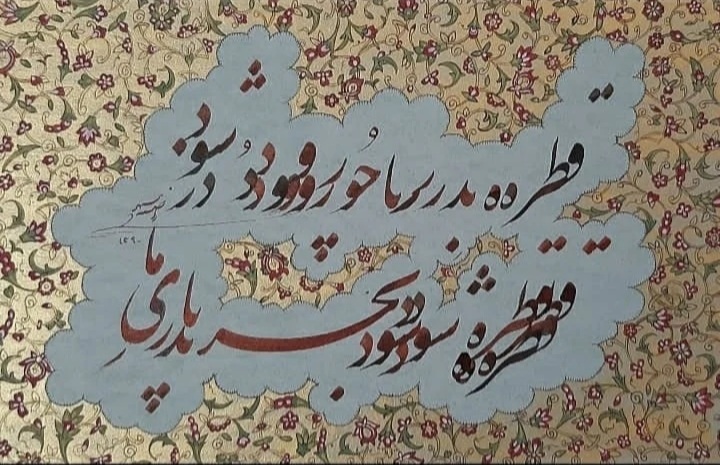 قطره به دریا چو رود دُر شود
قطره شود بحر به دریای ما